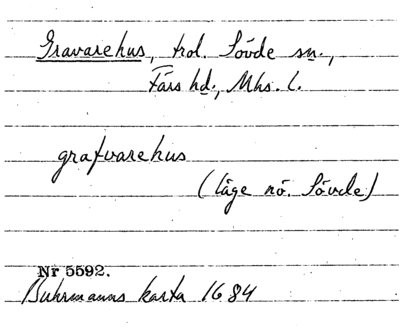 Gravarehus, trol. Sövde sn.,
Färs hd., Mhs. l.
grafvarehus
(läge nö. Sövde)
Nr 5592.
Buhrmanns karta 1684